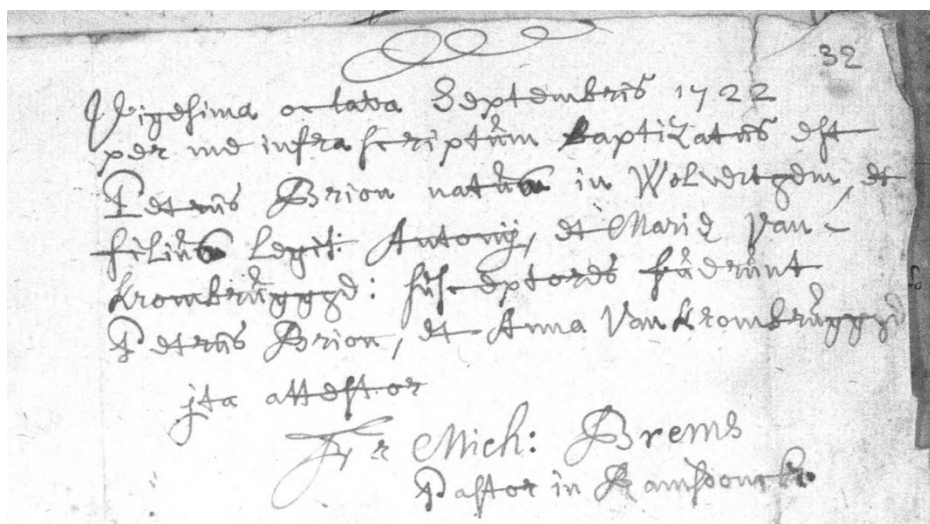 32
Vigesima octava Septembris 1722
per me infra scriptum baptizatus est
Petrus Brion natus in Wolvertgem, et
filius legit: Antonij, et Mariæ Van
Krombrugge: susceptores fuerunt
Petrus Brion, et Anna Van Krombrugge
jta attestor
Fr Mich: Brems
Pastor in Ramsdonck